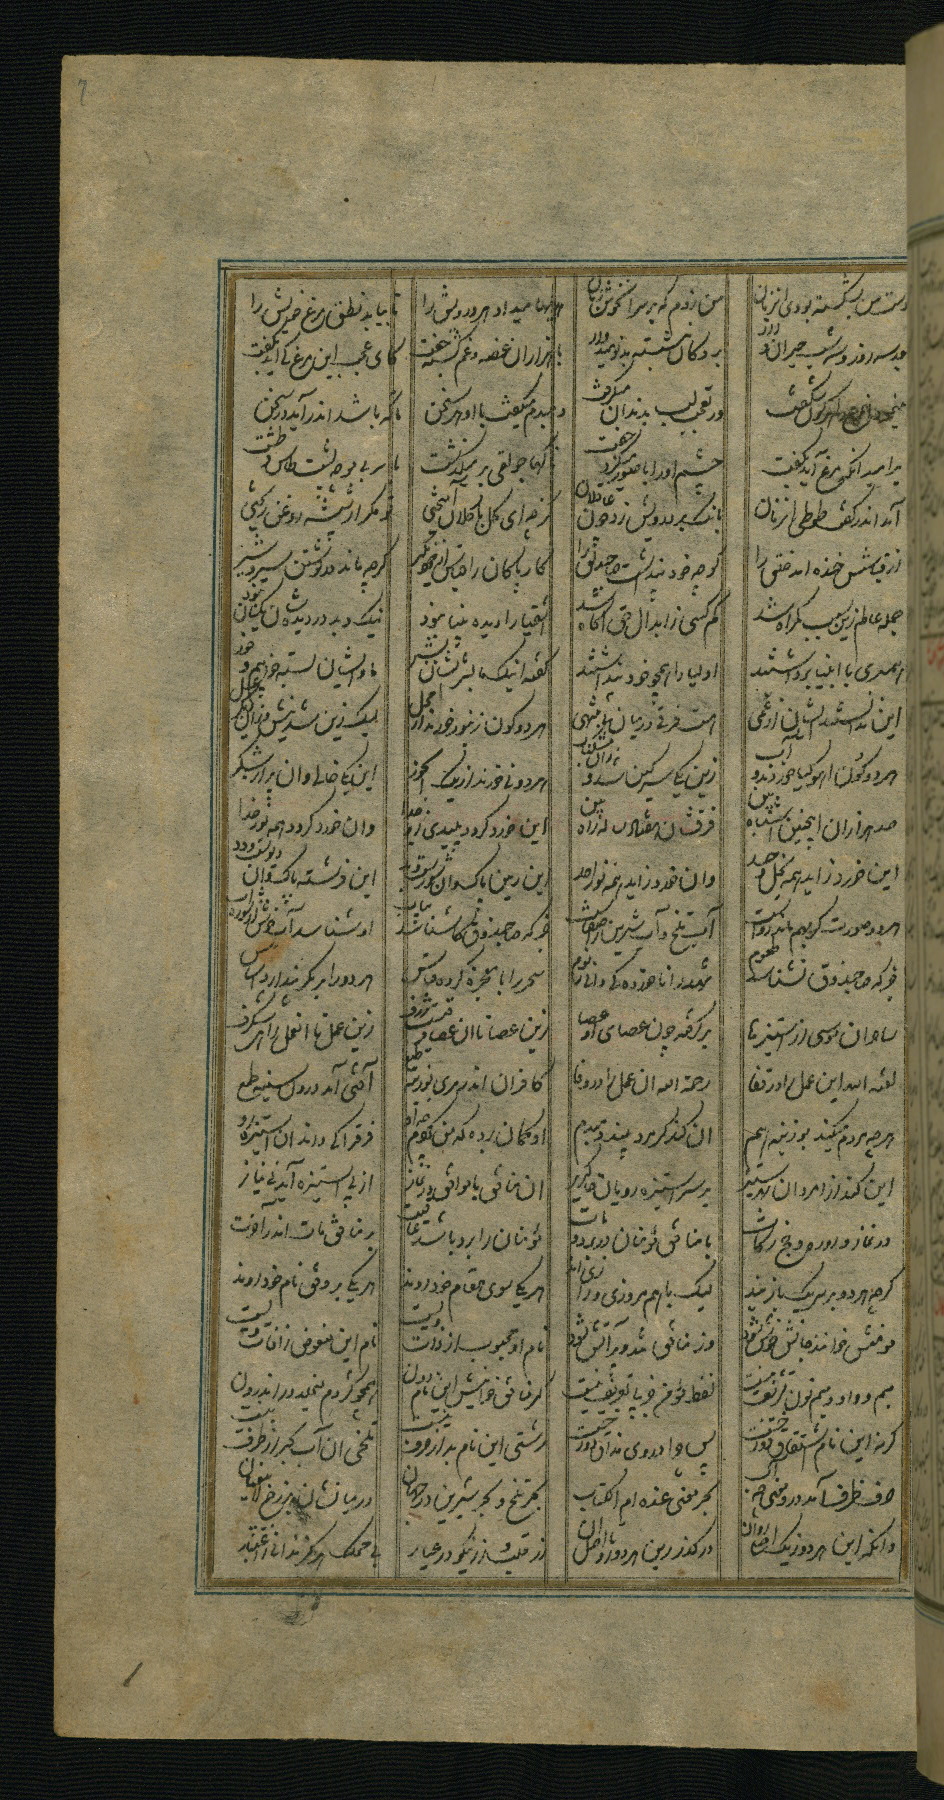 دست من بشکسته بودی آنزمان من زدم که بر سر آن خوش زبان هدیها میداد هر درویش را تا بیابد نطق مرغ خویش را
بعد سه روز و سه شب حیران و زار بر دکان بنشسته بد نومیدوار با هزاران غصه و غم گشته جفت کای عجب این مرغ کی آید بگفت
هر گون شگفت در تعجب لب بدندان میگرفت دمبدم میگفت با او هر سخن تا که باشد اندر آید در سخن
بر امید آنکه مرغ آید بگفت چشم او را با صور میکرد جفت ناگهان جولقی بر میگذشت با سر بی مو چو پشت طاس و طشت
آمد اندر گفت طوطی آنزمان بانگ بر درویش زد چون عاقلان کز چه ای کل با کلان آمیختی تو مگر از شیشه روغن ریختی
از قیاسش خنده آمد خلق را کو چو خود پنداشت صاحب دلق را کار پاکان را قیاس از خود مگیر گرچه ماند در نوشتن شیر و شیر
جمله عالم زین سبب گمراه شد کم کسی ز ابدال حق آگاه شد اشقیا را دیده بینا نبود نیک و بد در دیده شان یکسان نمود
همسری با انبیا برداشتند اولیا را همچو خود پنداشتند گفته اینک ما بشر ایشان بشر ما و ایشان بسته خوابیم و خور
این ندانستند ایشان از عمی هست فرقی در میان بی منتهی هر دو گون زنبور خوردند از محل لیک زین شد نیش وزان دیگر عسل
هر دو گون آهو گیا خوردند و آب زین یکی سرگین شد و زان مشک ناب هر دو نی خوردند از یک آبخور این یکی خالی و آن پر از شکر
صد هزاران اینچنین اشباه بین فرقشان هفتاد ساله راه بین این خورد گردد پلیدی زو جدا وان خورد گردد همه نور خدا
این خورد زاید همه بخل و حسد وان خورد زاید همه نور احد این زمین پاک و آن شورست و بد این فرشته پاک و آن دیوست و دد
هر دو صورت گر بهم ماند رواست آب تلخ و آب شیرین را صفاست جز که صاحب ذوق که شناسد بیاب او شناسد آب خوش از شوره آب
جز که صاحب ذوق نشناسد طعوم شهد را ناخورده کی دانی ز موم سحر را با معجزه کرده قیاس هر دو را بر مکر پندارد اساس
ساحران موسی از استیزه را برگرفته چون عصای او عصا زین عصا تا آن عصا فرقیست ژرف زین عمل تا آن عمل راهی شگرف
لعنه الله این عمل را در قفا رحمة الله آن عمل را در وفا کافران اندر مری بوزینه طبع آفتی آمد درون سینه طبع
هرچه مردم میکند بوزینه هم آن کند کز مرد بیند دمبدم او گمان برده که من کردم چو او فرق را کی داند آن استیزه رو
این کند از امر و آن بهر ستیز بر سر استیزه رویان خاک ریز آن منافق با موافق در نماز از پی استیزه آید نی نیاز
در نماز و روزه و حج و زکات با منافق مؤمنان در برد و مات مؤمنان را برد باشد عاقبت بر منافق مات اندر آخرت
گرچه هر دو بر سر یک بازیند لیک با هم مروزی و رازیند هر یکی سوی مقام خود روند هر یکی بر وفق نام خود روند
مؤمنش خوانند جانش خوش شود ور منافق تند و پر آتش شود نام او محبوب از ذات ویست نام این مبغوض ز آفات ویست
میم و واو و میم و نون تشریف نیست لفظ مؤمن جز پی تعریف نیست گر منافق خوانیش این نام دون همچو کژدم میخلد در اندرون
گرنه این نام اشتقاق دوزخست پس چرا در وی مذاق دوزخست زشتی این نام بد از حرف نیست تلخی آن آب بحر از ظرف نیست
حرف ظرف آمد درو معنی چو آب بحر معنی عنده ام الکتاب بحر تلخ و بحر شیرین در جهان در میانشان برزخ لا یبغیان
وانگه این هر دو ز یک اصلی روان در گذر زین هر دو رو تا اصل آن زر قلب و زر نیکو در عیار بی محک هرگز ندانی ز اعتبار